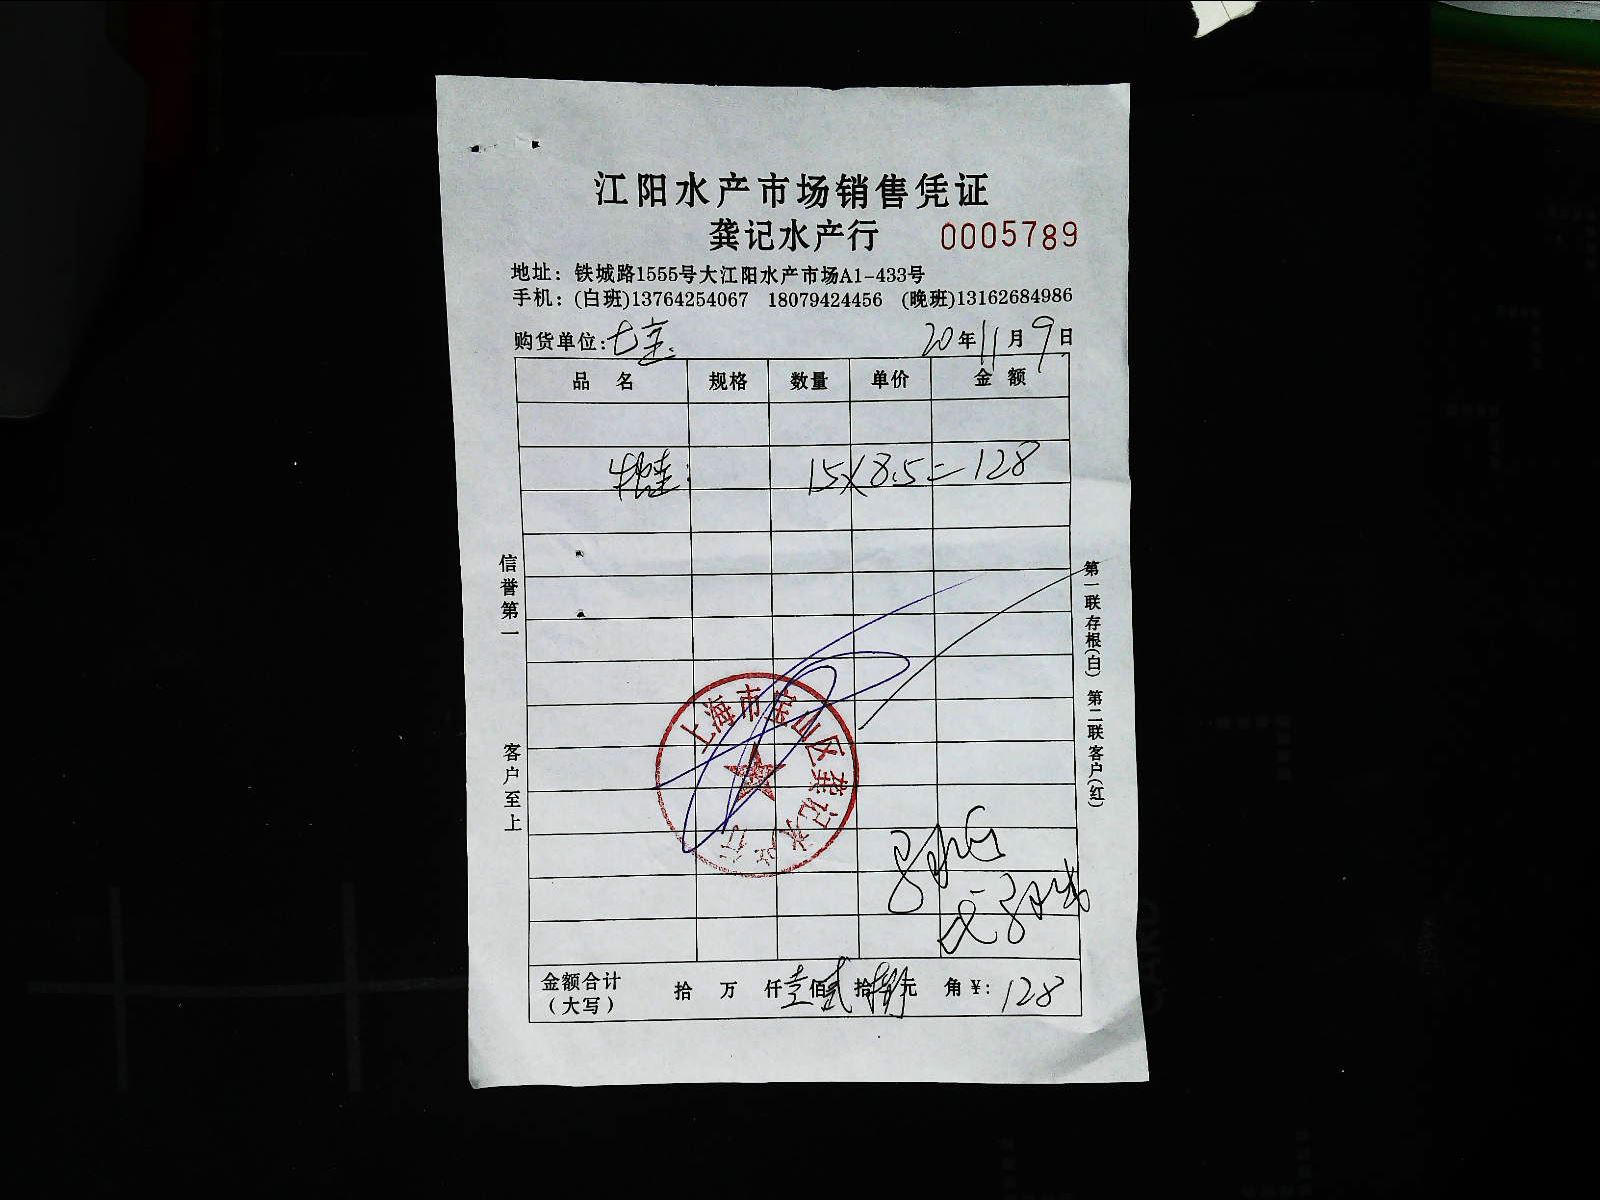 江阳水产市场销售凭证
龚记水产行 0005789
地址：铁城路1555号大江阳水产市场A1-433号
手机：(白班)13764254067 18079424456 (晚班)13162684986
购货单位：七宝 20年11月9日
品 名 规格 数量 单价 金 额
15×8.5=128
信誉第一
客户至上
第一联存根(白) 第二联客户(红)
上海市宝山区龚记水产行
金额合计 拾 万 仟壹佰贰拾捌元 角¥：128
（大写）